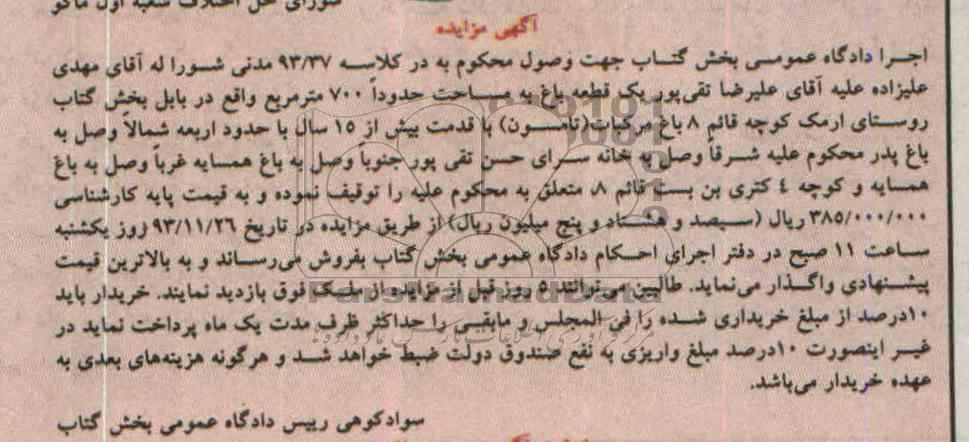 شورای حل اختلاف شعبه اول ماکو
آگهی مزایده
اجرا دادگاه عمومی بخش گتاب جهت وصول محکوم به در کلاسه ۹۳/۳۷ مدنی شورا له آقای مهدی
علیزاده علیه آقای علیرضا تقی‌پور یک قطعه باغ به مساحت حدوداً ۷۰۰ مترمربع واقع در بابل بخش گتاب
روستای ارمک کوچه قائم ۸ باغ مرکبات(تامسون) با قدمت بیش از ۱۵ سال با حدود اربعه شمالاً وصل به
باغ پدر محکوم علیه شرقاً وصل به خانه سرای حسن تقی پور جنوباً وصل به باغ همسایه غرباً وصل به باغ
همسایه و کوچه ٤ کتری بن بست قائم ۸، متعلق به محکوم علیه را توقیف نموده و به قیمت پایه کارشناسی
۳۸۵/۰۰۰/۰۰۰ ریال (سیصد و هشتاد و پنج میلیون ریال) از طریق مزایده در تاریخ ۹۳/۱۱/۲۶ روز یکشنبه
ساعت ۱۱ صبح در دفتر اجرای احکام دادگاه عمومی بخش گتاب بفروش می‌رساند و به بالاترین قیمت
پیشنهادی واگذار می‌نماید. طالبین می‌توانند ۵ روز قبل از مزایده از ملک فوق بازدید نمایند. خریدار باید
۱۰درصد از مبلغ خریداری شده را فی المجلس و مابقی را حداکثر ظرف مدت یک ماه پرداخت نماید در
غیر اینصورت ۱۰درصد مبلغ واریزی به نفع صندوق دولت ضبط خواهد شد و هرگونه هزینه‌های بعدی به
عهده خریدار می‌باشد.
سوادکوهی رییس دادگاه عمومی بخش گتاب
ParsNamadData